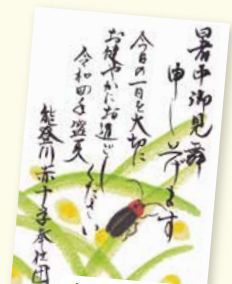 暑中御見舞
申し上げます
今日の一日を大切に
お健やかにお過ごし
ください
令和四年盛夏
能登川赤十字奉仕団